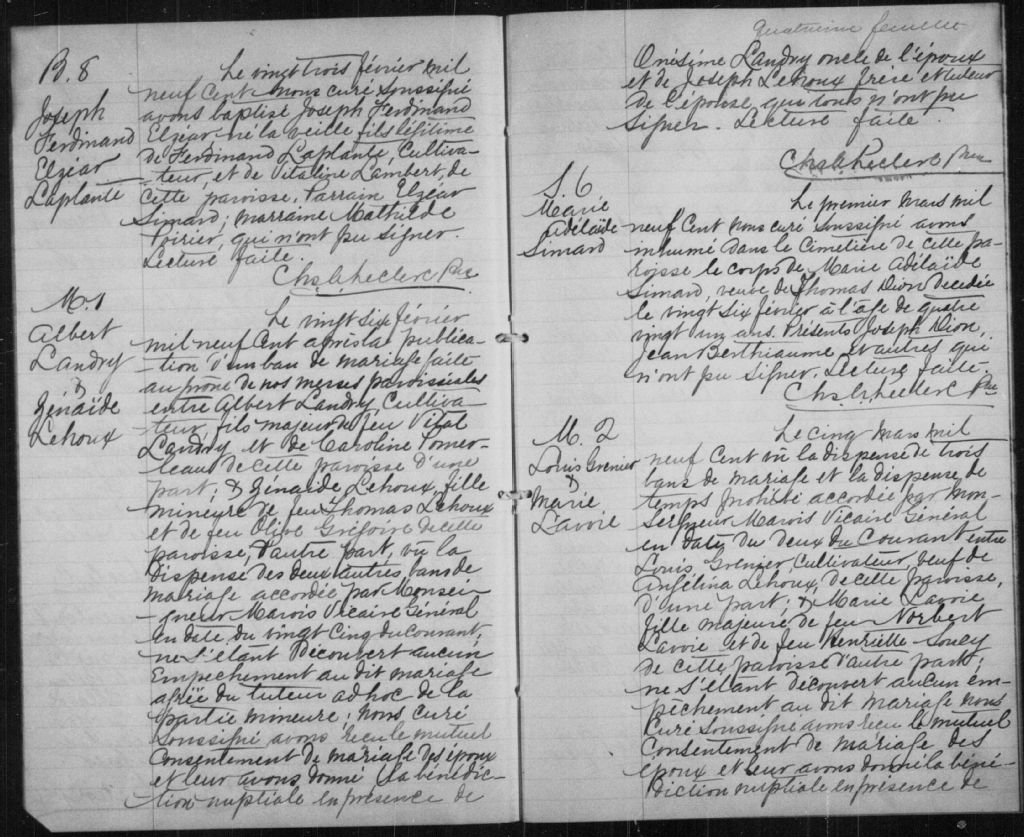 B. 8
Joseph
Ferdinand
Elzéar
Laplante
Le vingt trois février mil
neuf Cent nous curé soussigné
avons baptisé Joseph Ferdinand
Elzéar né la veille fils légitime
de Ferdinand Laplante, Cultiva-
-teur, et de Vitaline Lambert, de
cette paroisse. Parrain Elzéar
Simard; marraine Mathilde
Poirier, qui n'ont pu signer.
Lecture faite.
Chs. A. Leclerc Ptre
M. 1
Albert
Landry
&
Génaïde
Lehoux
Le vingt six février
mil neuf Cent après la publica-
-tion d'un ban de mariage faite
au prône de nos messes paroissiales
entre Albert Landry, Cultiva-
-teur, fils majeur de feu Vital
Landry et de Caroline Pomer-
leau de cette paroisse d'une
part; & Génaïde Lehoux, fille
mineure de feu Thomas Lehoux
et de feu Olive Grégoire de cette
paroisse, d'autre part, vu la
dispense des deux autres bans de
mariage accordée par Monsei-
-gneur Marois Vicaire Général
en date du vingt cinq du courant;
ne s'étant découvert aucun
Empechement au dit mariage
agréé du tuteur ad hoc de la
partie mineure; nous curé
soussigné avons reçu le mutuel
Consentement de mariage des époux
et leur avons donné la bénédic-
-tion nuptiale en présence de
quatrième feuillet
Onésime Landry oncle de l'époux
et de Joseph Lehoux frère et tuteur
de l'épouse, qui tous n'ont pu
signer. Lecture faite.
Chs. A. Leclerc Ptre
S. 6
Marie
Adélaïde
Simard
Le premier Mars mil
neuf Cent nous curé soussigné avons
inhumé dans le Cimetière de cette pa-
roisse le corps de Marie Adélaïde
Simard, veuve de Thomas Dion decedée
le vingt six février à l'âge de quatre
vingt un ans. Présents Joseph Dion,
Jean Berthiaume, et autres qui
n'ont pu signer. Lecture faite.
Chs. A. Leclerc Ptre
M. 2
Louis Grenier
&
Marie
Lavoie
Le cinq Mars mil
neuf Cent vu la dispense de trois
bans de mariage et la dispense de
temps prohibé accordée par Mon-
seigneur Marois Vicaire Général
en date du deux du Courant entre
Louis Grenier Cultivateur, veuf de
Angélina Lehoux, de cette paroisse,
d'une part; & Marie Lavoie
fille majeure de feu Norbert
Lavoie et de feu Henriette Soucy
de cette paroisse d'autre part;
ne s'étant découvert aucun em-
pechement au dit mariage nous
Curé soussigné avons reçu le mutuel
Consentement de mariage des
époux et leur avons donné la béné-
-diction nuptiale en présence de